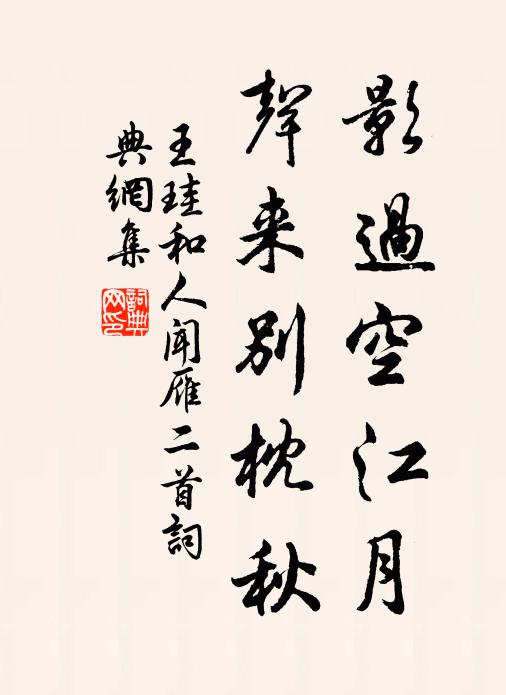 影過空江月
聲来別枕秋
王珪和人闻雁二首詞
典網集
詞典網印